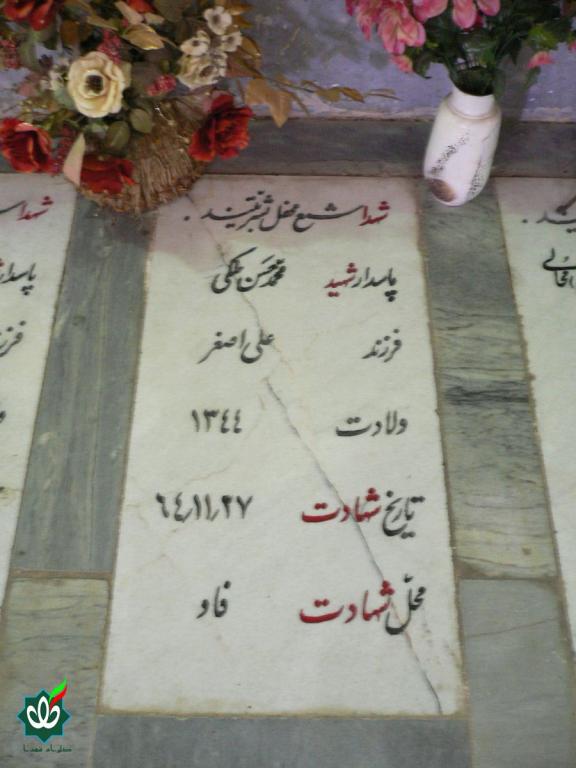 شهدا شمع محفل بشریتند .
پاسدار شهید محمد حسن ملکی
فرزند علی اصغر
ولادت ۱۳۴۴
تاریخ شهادت ۶۴٫۱۱٫۲۷
محلّ شهادت فاو
شهدا
پاسدار